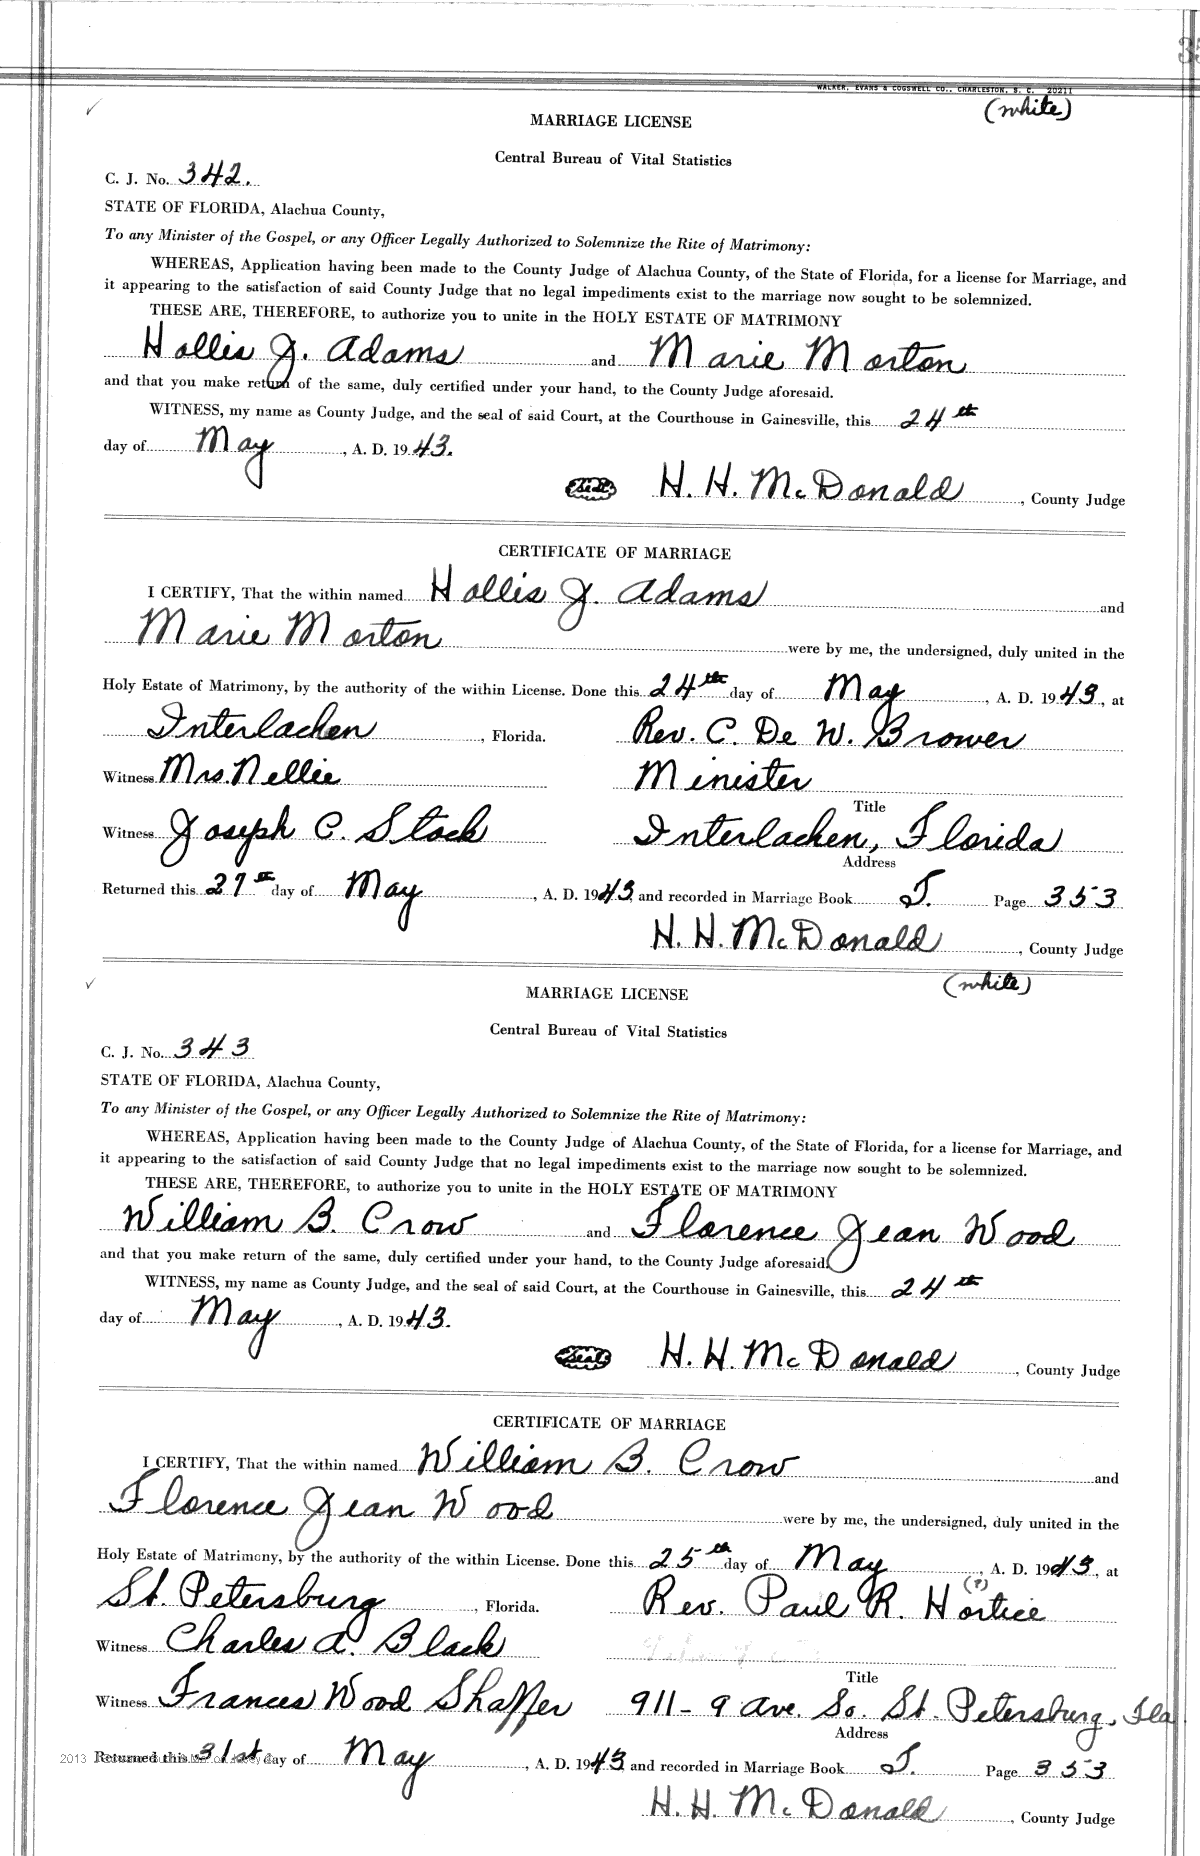 WALKER, EVANS & COGSWELL CO., CHARLESTON, S. C. 20211
(white)
MARRIAGE LICENSE
Central Bureau of Vital Statistics
C. J. No. 342.
STATE OF FLORIDA, Alachua County,
To any Minister of the Gospel, or any Officer Legally Authorized to Solemnize the Rite of Matrimony:
WHEREAS, Application having been made to the County Judge of Alachua County, of the State of Florida, for a license for Marriage, and
it appearing to the satisfaction of said County Judge that no legal impediments exist to the marriage now sought to be solemnized.
THESE ARE, THEREFORE, to authorize you to unite in the HOLY ESTATE OF MATRIMONY
Hollis J. Adams and Marie Morton
and that you make return of the same, duly certified under your hand, to the County Judge aforesaid.
WITNESS, my name as County Judge, and the seal of said Court, at the Courthouse in Gainesville, this 24th
day of May, A. D. 1943.
Seal H. H. McDonald, County Judge
CERTIFICATE OF MARRIAGE
I CERTIFY, That the within named Hollis J. Adams and
Marie Morton were by me, the undersigned, duly united in the
Holy Estate of Matrimony, by the authority of the within License. Done this 24th day of May, A. D. 1943, at
Interlachen, Florida. Rev. C. De W. Brower
Witness Mrs. Nellie Minister
Title
Witness Joseph C. Stock Interlachen, Florida
Address
Returned this 27th day of May, A. D. 1943, and recorded in Marriage Book T. Page 353
H. H. McDonald, County Judge
(white)
MARRIAGE LICENSE
Central Bureau of Vital Statistics
C. J. No. 343
STATE OF FLORIDA, Alachua County,
To any Minister of the Gospel, or any Officer Legally Authorized to Solemnize the Rite of Matrimony:
WHEREAS, Application having been made to the County Judge of Alachua County, of the State of Florida, for a license for Marriage, and
it appearing to the satisfaction of said County Judge that no legal impediments exist to the marriage now sought to be solemnized.
THESE ARE, THEREFORE, to authorize you to unite in the HOLY ESTATE OF MATRIMONY
William B. Crow and Florence Jean Wood
and that you make return of the same, duly certified under your hand, to the County Judge aforesaid.
WITNESS, my name as County Judge, and the seal of said Court, at the Courthouse in Gainesville, this 24th
day of May, A. D. 1943.
Seal H. H. McDonald, County Judge
CERTIFICATE OF MARRIAGE
I CERTIFY, That the within named William B. Crow and
Florence Jean Wood were by me, the undersigned, duly united in the
Holy Estate of Matrimony, by the authority of the within License. Done this 25th day of May, A. D. 1943, at
(?)
St. Petersburg, Florida. Rev. Paul R. Hortice
Witness Charles A. Black
Title
Witness Frances Wood Shaffer 911-9 Ave. So. St. Petersburg, Fla.
Address
2013
Returned this 31st day of May, A. D. 1943, and recorded in Marriage Book T. Page 353
H. H. McDonald, County Judge